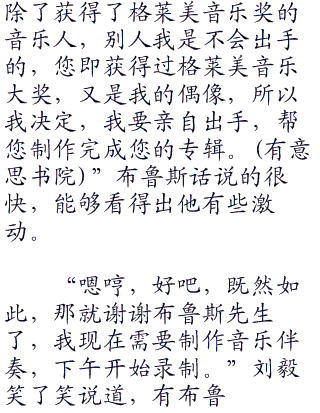 除了获得了格莱美音乐奖的
音乐人，别人我是不会出手
的，您即获得过格莱美音乐
大奖，又是我的偶像，所以
我决定，我要亲自出手，帮
您制作完成您的专辑。(有意
思书院)”布鲁斯话说的很
快，能够看得出他有些激
动。
“嗯哼，好吧，既然如
此，那就谢谢布鲁斯先生
了，我现在需要制作音乐伴
奏，下午开始录制。”刘毅
笑了笑说道，有布鲁